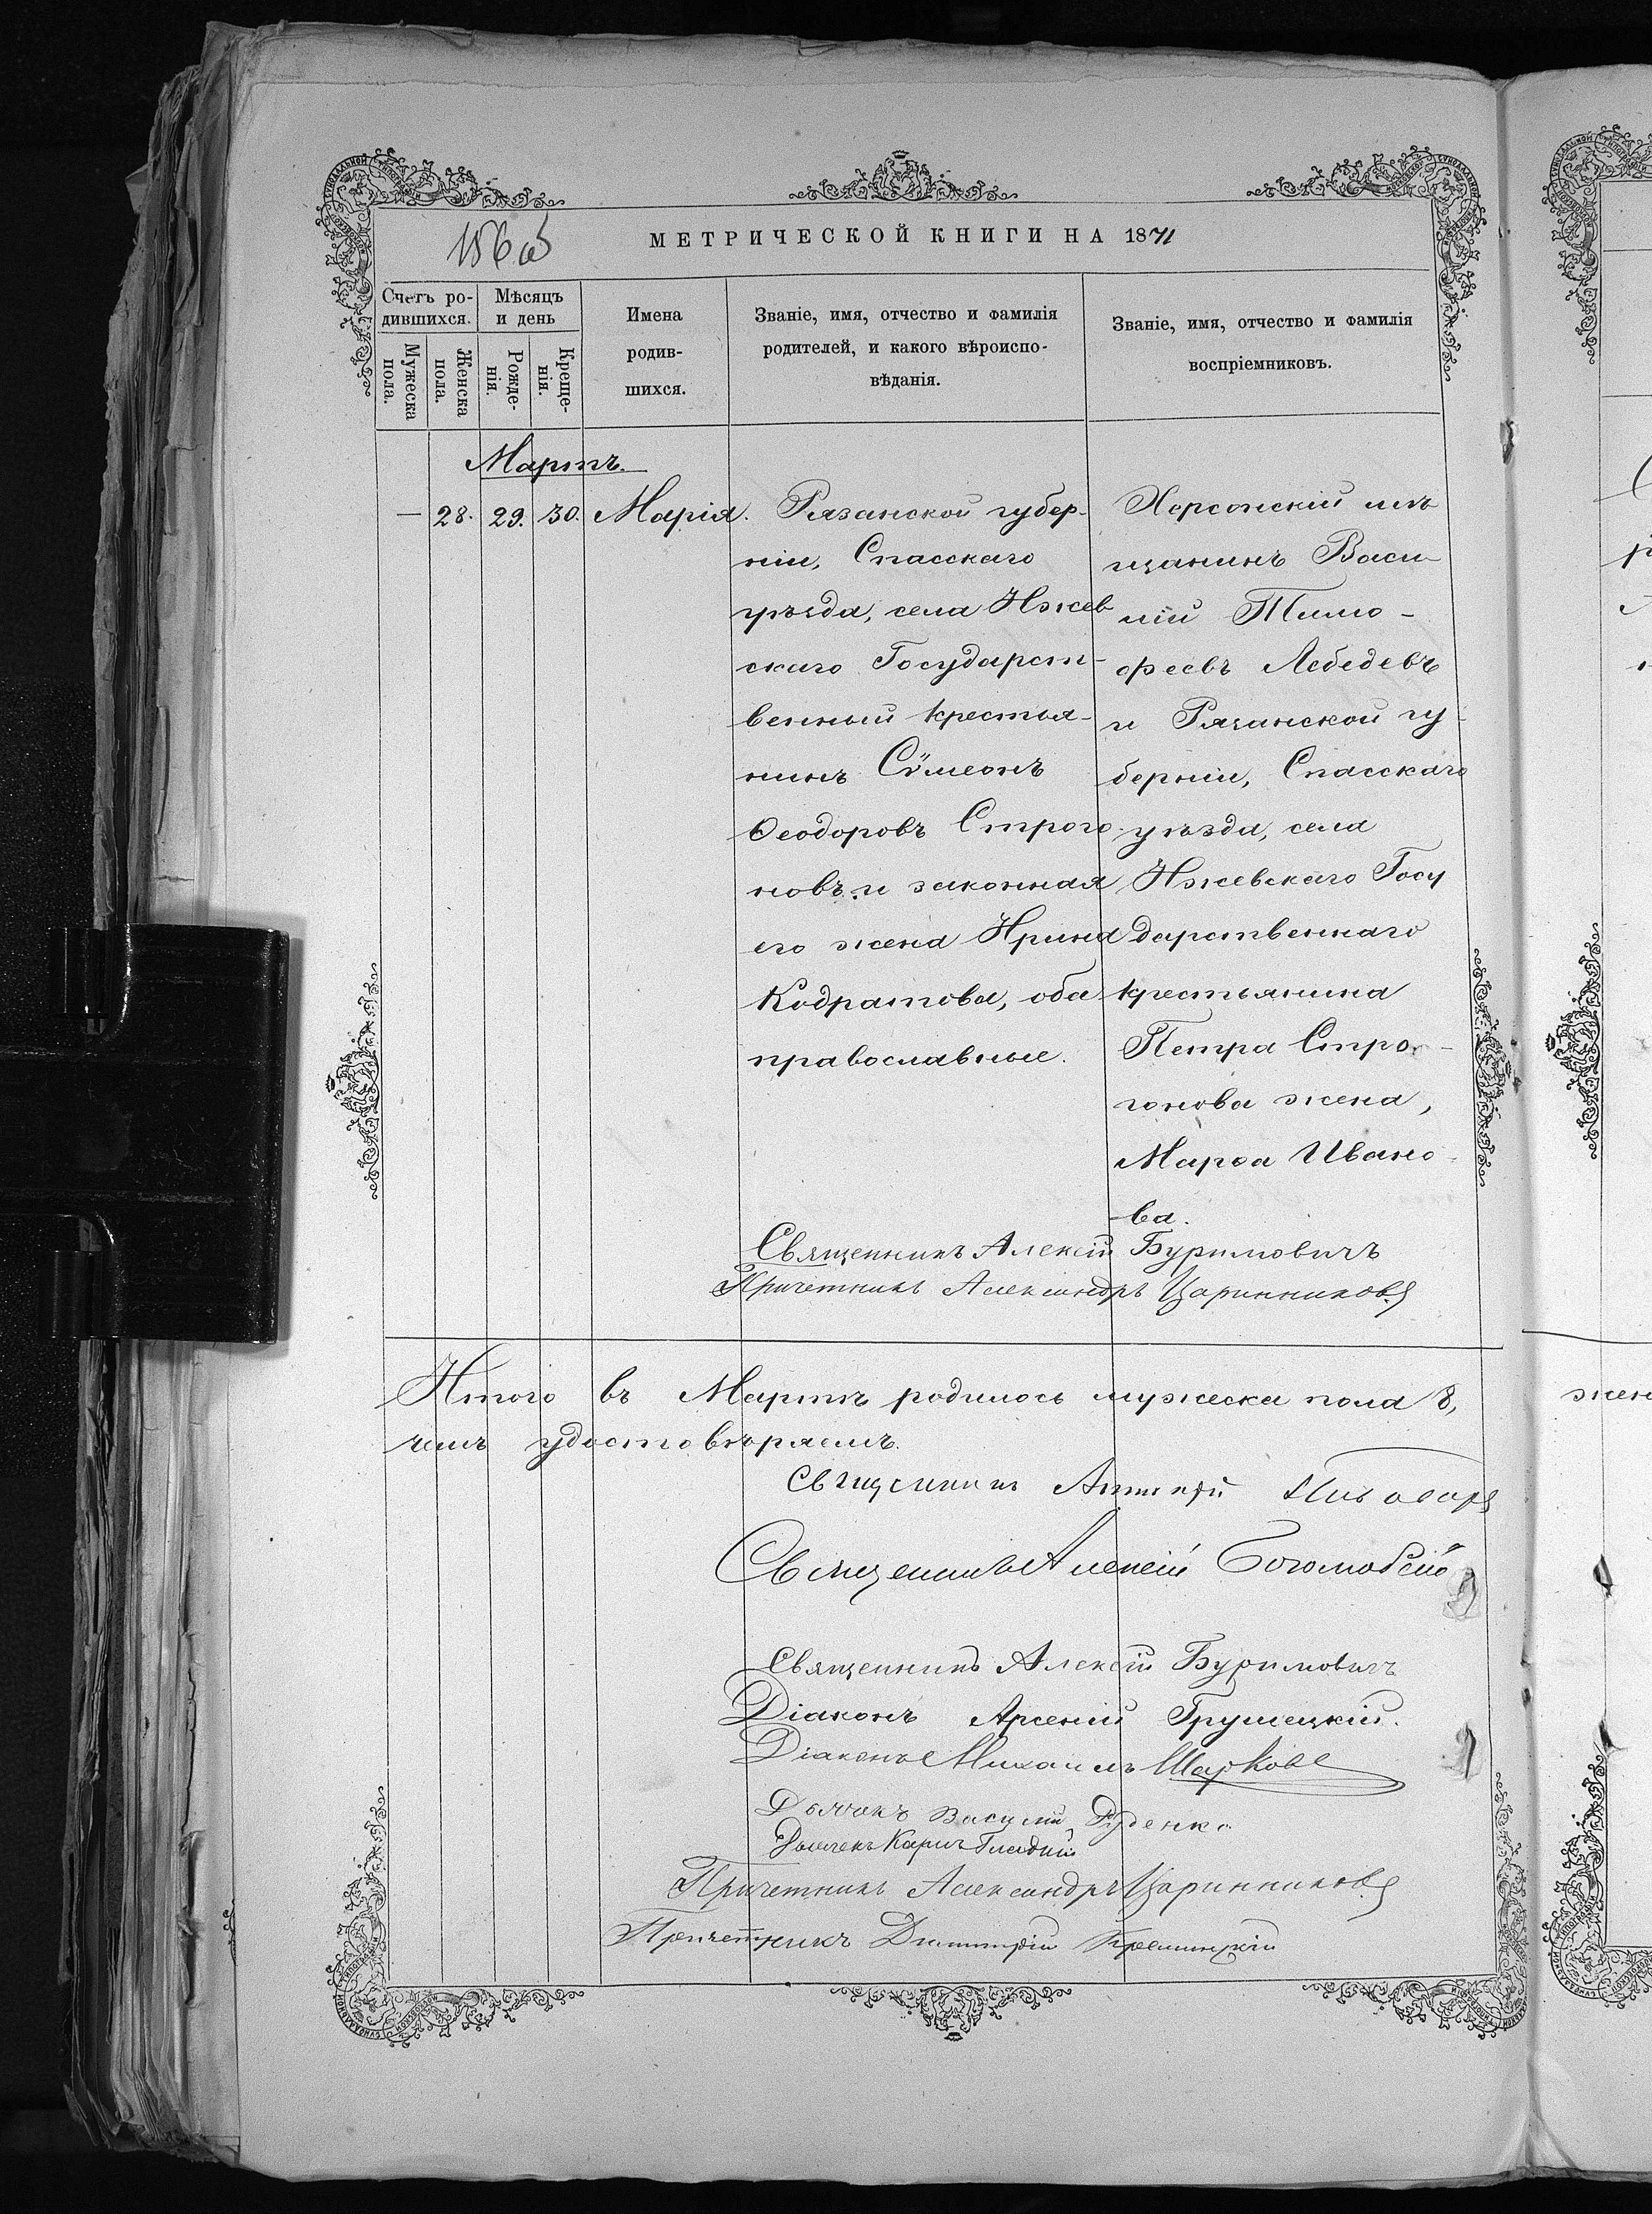 156 об
МЕТРИЧЕСКОЙ КНИГИ НА 1871
Счетъ ро-
дившихся.
Мужеска
пола.
Женска
пола.
Мѣсяцъ
и день
Рожде-
нія.
Креще-
нія.
Имена
родив-
шихся.
Званіе, имя, отчество и фамилія
родителей, и какого вѣроиспо-
вѣданія.
Званіе, имя, отчество и фамилія
воспріемниковъ.
Мартъ.
— 28. 29. 30. Марія.
Рязанской губер-
ніи, Спасскаго
уѣзда, села Ижев
скаго Государст-
венный крестья-
нинъ Сѵмеонъ
Ѳеодоровъ Строго-
новъ и законная
его жена Ирина
Кодратова, оба
православные.
Херсонскій мѣ
щанинъ Васи
лій Тимо-
феевъ Лебедевъ
и Рязанской гу-
берніи, Спасскаго
уѣзда, села
Ижевскаго Госу
дарственнаго
крестьянина
Петра Стро-
гонова жена,
Марѳа Ивано-
ва.
Священникъ Алексій Буримовичъ
Причетникъ Александръ Царинниковъ
Итого въ Мартѣ родилось мужеска пола 8,
чемъ удостовѣряемъ.
Священникъ
Священникъ Алексій
Священникъ Алексій Буримовичъ
Діаконъ Арсеній Грушецкій.
Діаконъ Михаилъ Шарковъ
Дьячокъ Василій Руденко
Дьячекъ Карпъ Гладкій
Причетникъ Александръ Царинниковъ
Причетникъ Димитрій
жен